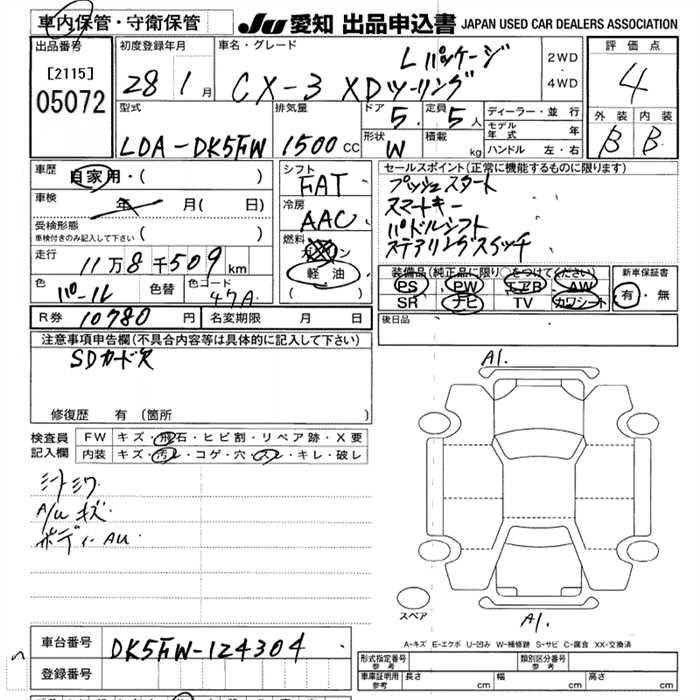 車内保管・守衛保管
JU 愛知 出品申込書 JAPAN USED CAR DEALERS ASSOCIATION
出品番号
[2115]
05072
初度登録年月
28 1 月
車名・グレード
Lパッケージ
CX-3 XDツーリング
2WD
4WD
評価点
4
外装 内装
B B
型式
LDA-DK5FW
排気量
1500 CC
ドア 5
定員 5人
形状 W
積載 kg
ディーラー・並行
モデル年式 年
ハンドル 左・右
車歴
自家用・( )
車検
年 月( 日)
受検形態
車検付きのみ記入して下さい ( )
走行
11万8千509 km
色
パール
色替
色コード
47A
シフト
FAT
冷房
AAC
燃料
ガソリン
軽油
( )
セールスポイント(正常に機能するものに限ります)
プッシュスタート
スマートキー
パドルシフト
ステアリングスイッチ
装備品(純正品に限り○をつけてください)
PS PW エアB AW
SR ナビ TV カワシート
新車保証書
有・無
R券 10780 円
名変期限 月 日
後日品
注意事項申告欄(不具合内容等は具体的に記入して下さい)
SDカード欠
修復歴 有(箇所 )
検査員記入欄
FW キズ・飛石・ヒビ割・リペア跡・X要
内装 キズ・汚レ・コゲ・穴・スレ・キレ・破レ
シートシワ
A/W キズ
ボディーAU
A1.
スペア
A1.
A-キズ E-エクボ U-凹み W-補修跡 S-サビ C-腐食 XX-交換済
車台番号
DK5FW-124304
登録番号
形式指定番号 参考
類別区分番号 参考
車庫証明用 参考
長さ cm 幅 cm 高さ cm